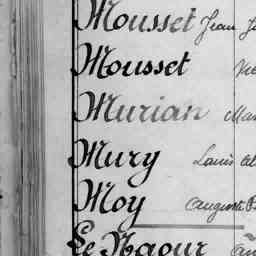 Mousset Jean
Mousset
Murian
Mury Louis
Moy Auguste
Le Naour